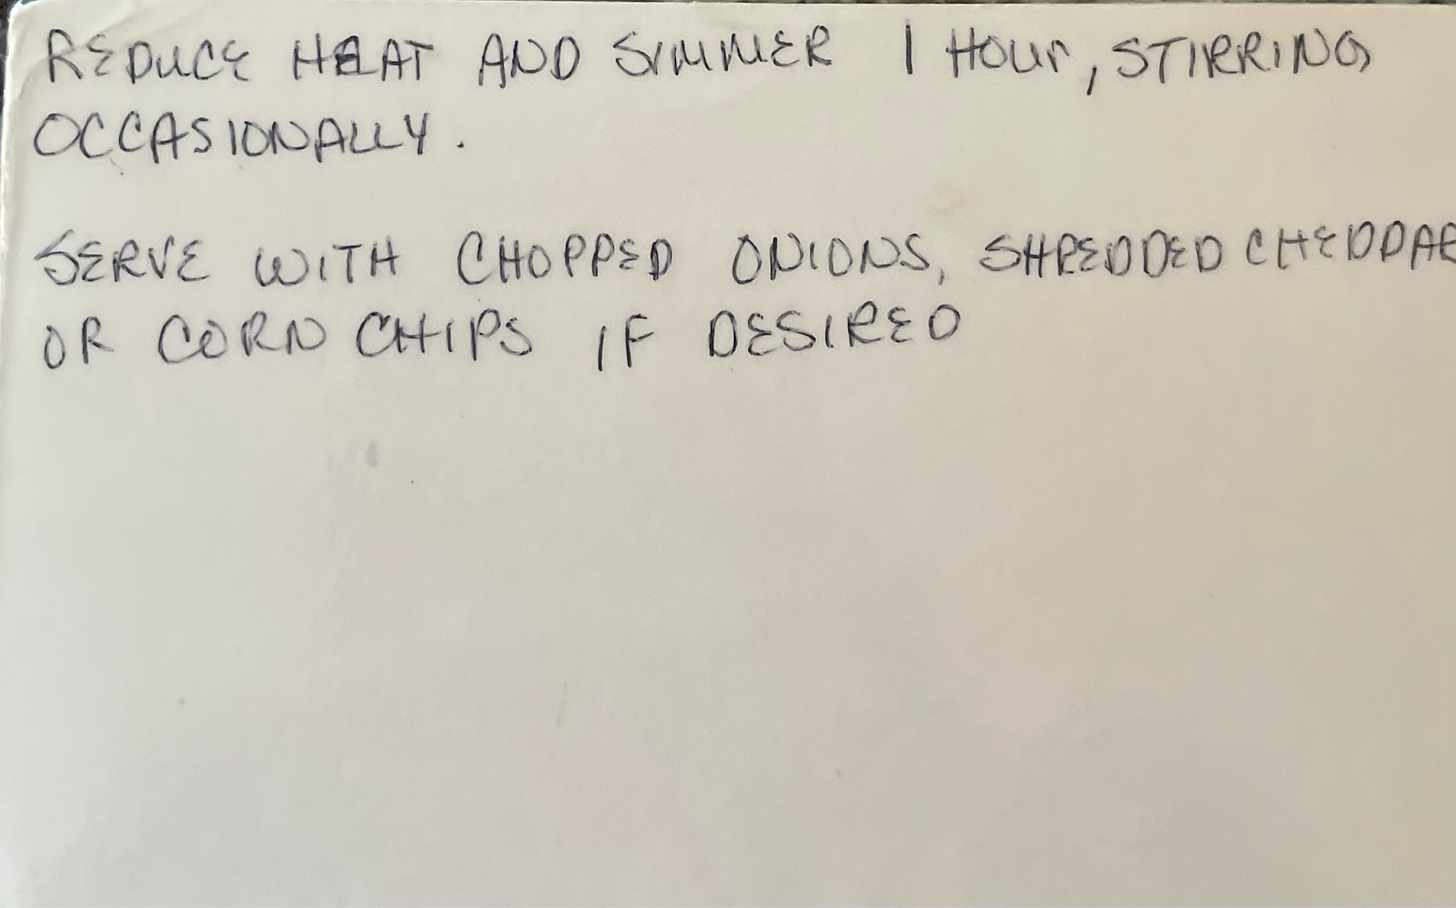 REDUCE HEAT AND SIMMER 1 HOUR, STIRRING
OCCASIONALLY.
SERVE WITH CHOPPED ONIONS, SHREDDED CHEDDAR
OR CORN CHIPS IF DESIRED